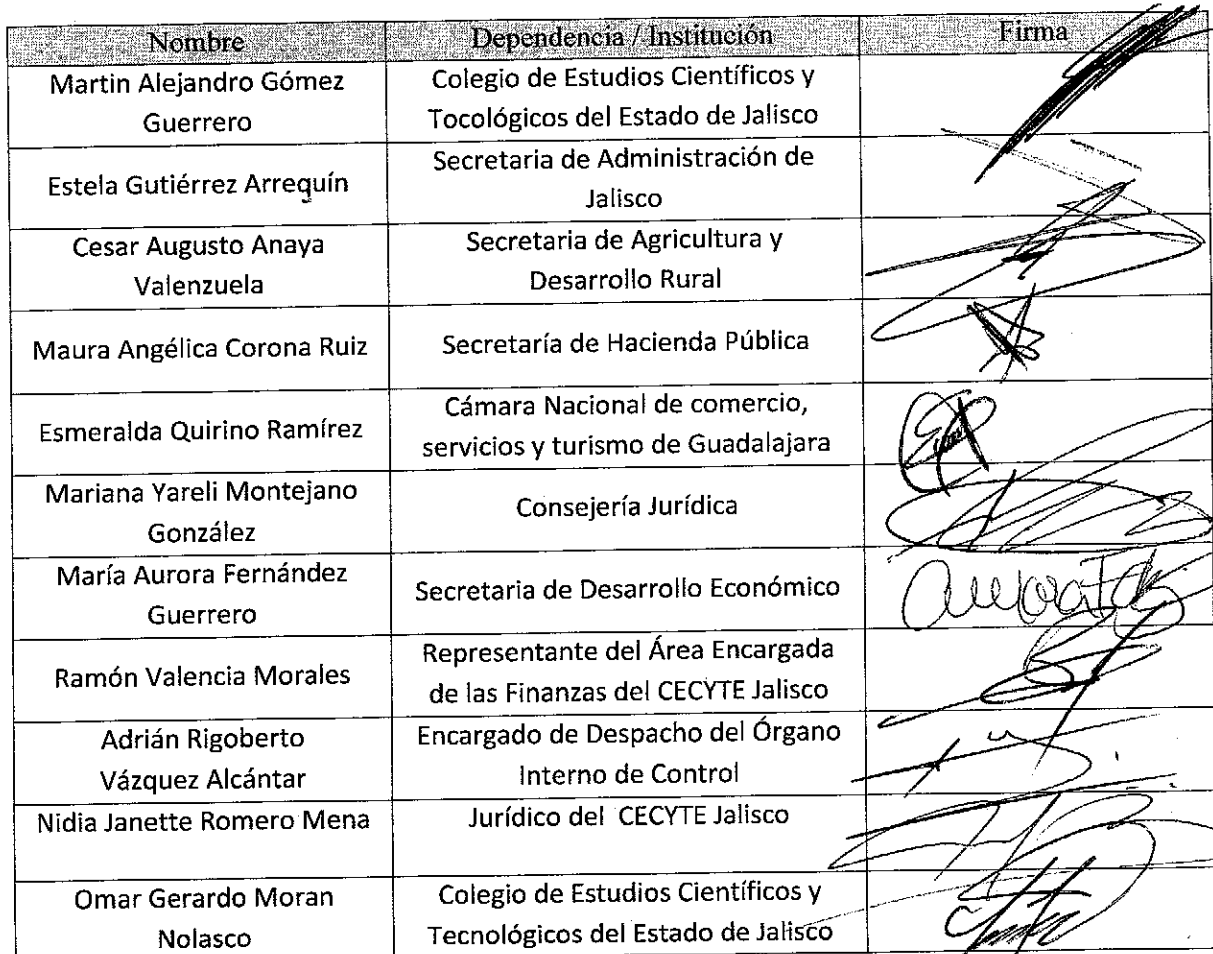 Nombre Dependencia / Institución Firma
Martin Alejandro Gómez
Guerrero
Colegio de Estudios Científicos y
Tocológicos del Estado de Jalisco
Estela Gutiérrez Arrequín
Secretaria de Administración de
Jalisco
Cesar Augusto Anaya
Valenzuela
Secretaria de Agricultura y
Desarrollo Rural
Maura Angélica Corona Ruiz
Secretaría de Hacienda Pública
Esmeralda Quirino Ramírez
Cámara Nacional de comercio,
servicios y turismo de Guadalajara
Mariana Yareli Montejano
González
Consejería Jurídica
María Aurora Fernández
Guerrero
Secretaria de Desarrollo Económico
Ramón Valencia Morales
Representante del Área Encargada
de las Finanzas del CECYTE Jalisco
Adrián Rigoberto
Vázquez Alcántar
Encargado de Despacho del Órgano
Interno de Control
Nidia Janette Romero Mena
Jurídico del CECYTE Jalisco
Omar Gerardo Moran
Nolasco
Colegio de Estudios Científicos y
Tecnológicos del Estado de Jalisco